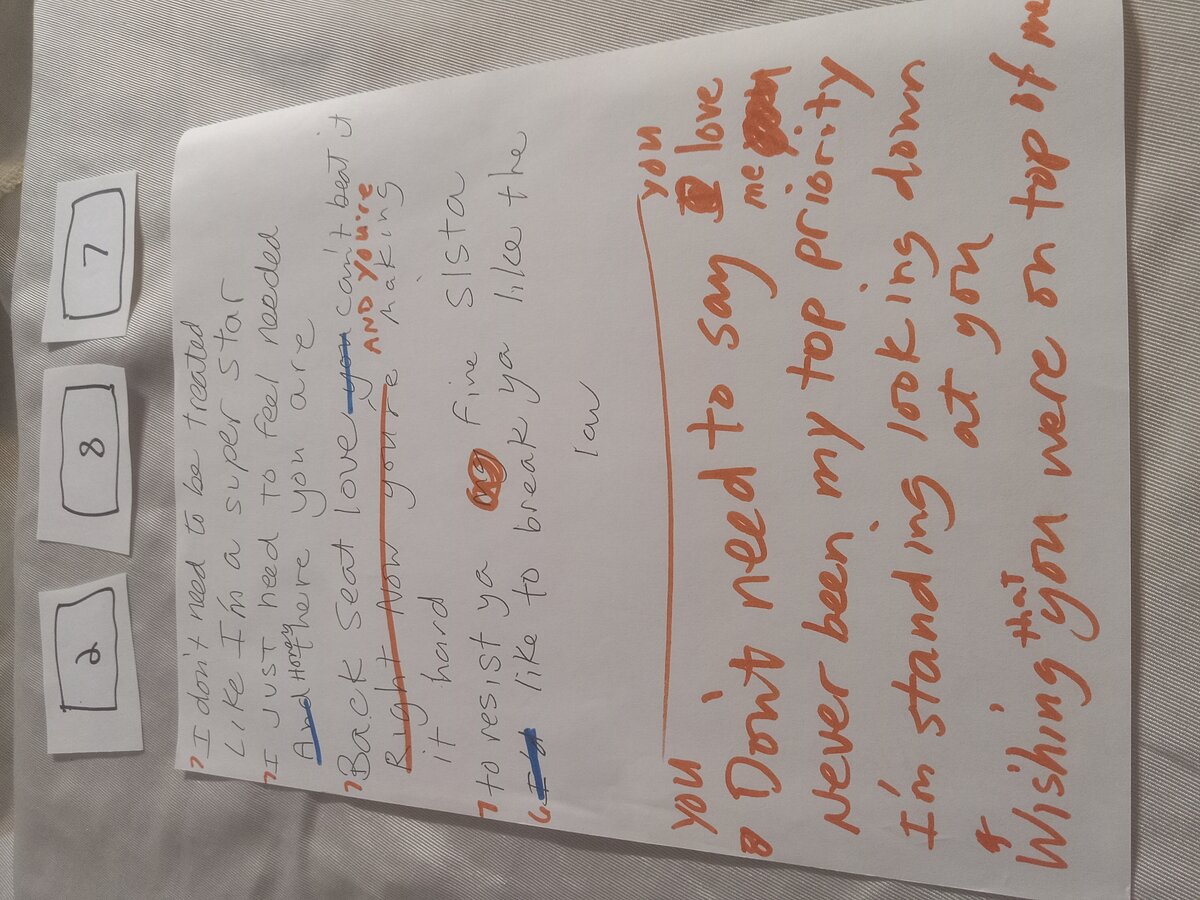 2 8 7
7 I don't need to be treated
Like I'm a super star
7 I JUST need to feel needed
And Honey there you are
7 Back seat love you can't beat it
Right Now you're AND YOU'RE making
it hard
7 to resist ya fine SISta
6 I'd like to break ya like the
law
you
8 Don't need to say you I love me
Never been my top priority
I'm standing looking down
at you
Wishing that you were on top of me